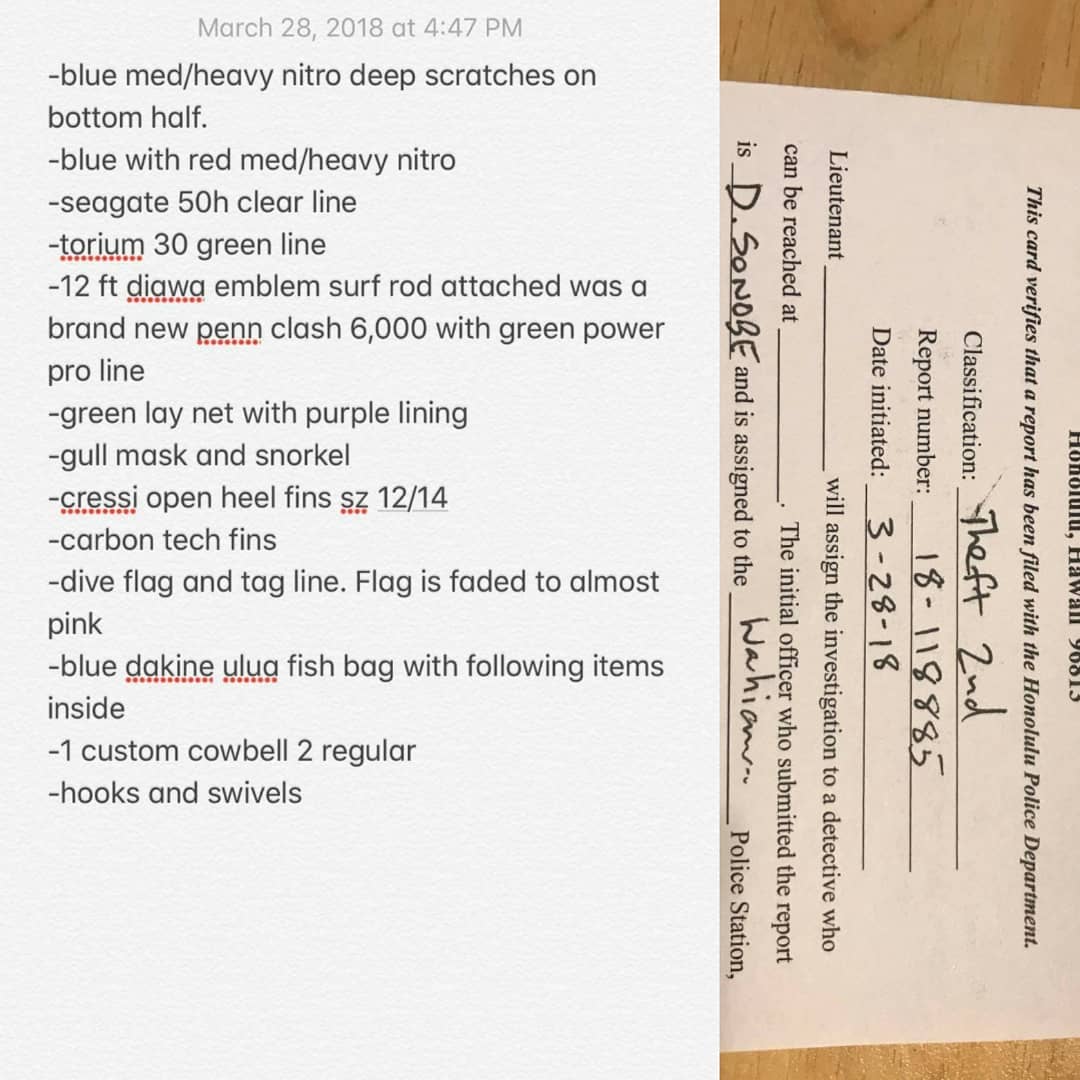 March 28, 2018 at 4:47 PM
-blue med/heavy nitro deep scratches on
bottom half.
-blue with red med/heavy nitro
-seagate 50h clear line
-torium 30 green line
-12 ft diawa emblem surf rod attached was a
brand new penn clash 6,000 with green power
pro line
-green lay net with purple lining
-gull mask and snorkel
-cressi open heel fins sz 12/14
-carbon tech fins
-dive flag and tag line. Flag is faded to almost
pink
-blue dakine ulua fish bag with following items
inside
-1 custom cowbell 2 regular
-hooks and swivels
Honolulu, Hawaii 96813
This card verifies that a report has been filed with the Honolulu Police Department.
Classification: Theft 2nd
Report number: 18-118885
Date initiated: 3-28-18
Lieutenant will assign the investigation to a detective who
can be reached at . The initial officer who submitted the report
is D. SONOBE and is assigned to the Police Station,